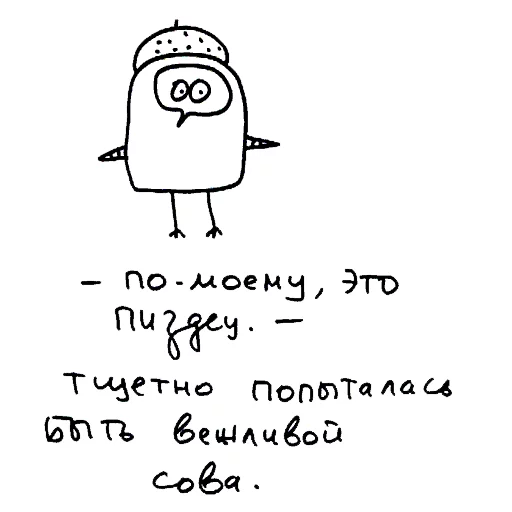 – по-моему, это
пиздец. –
тщетно попыталась
быть вежливой
сова.